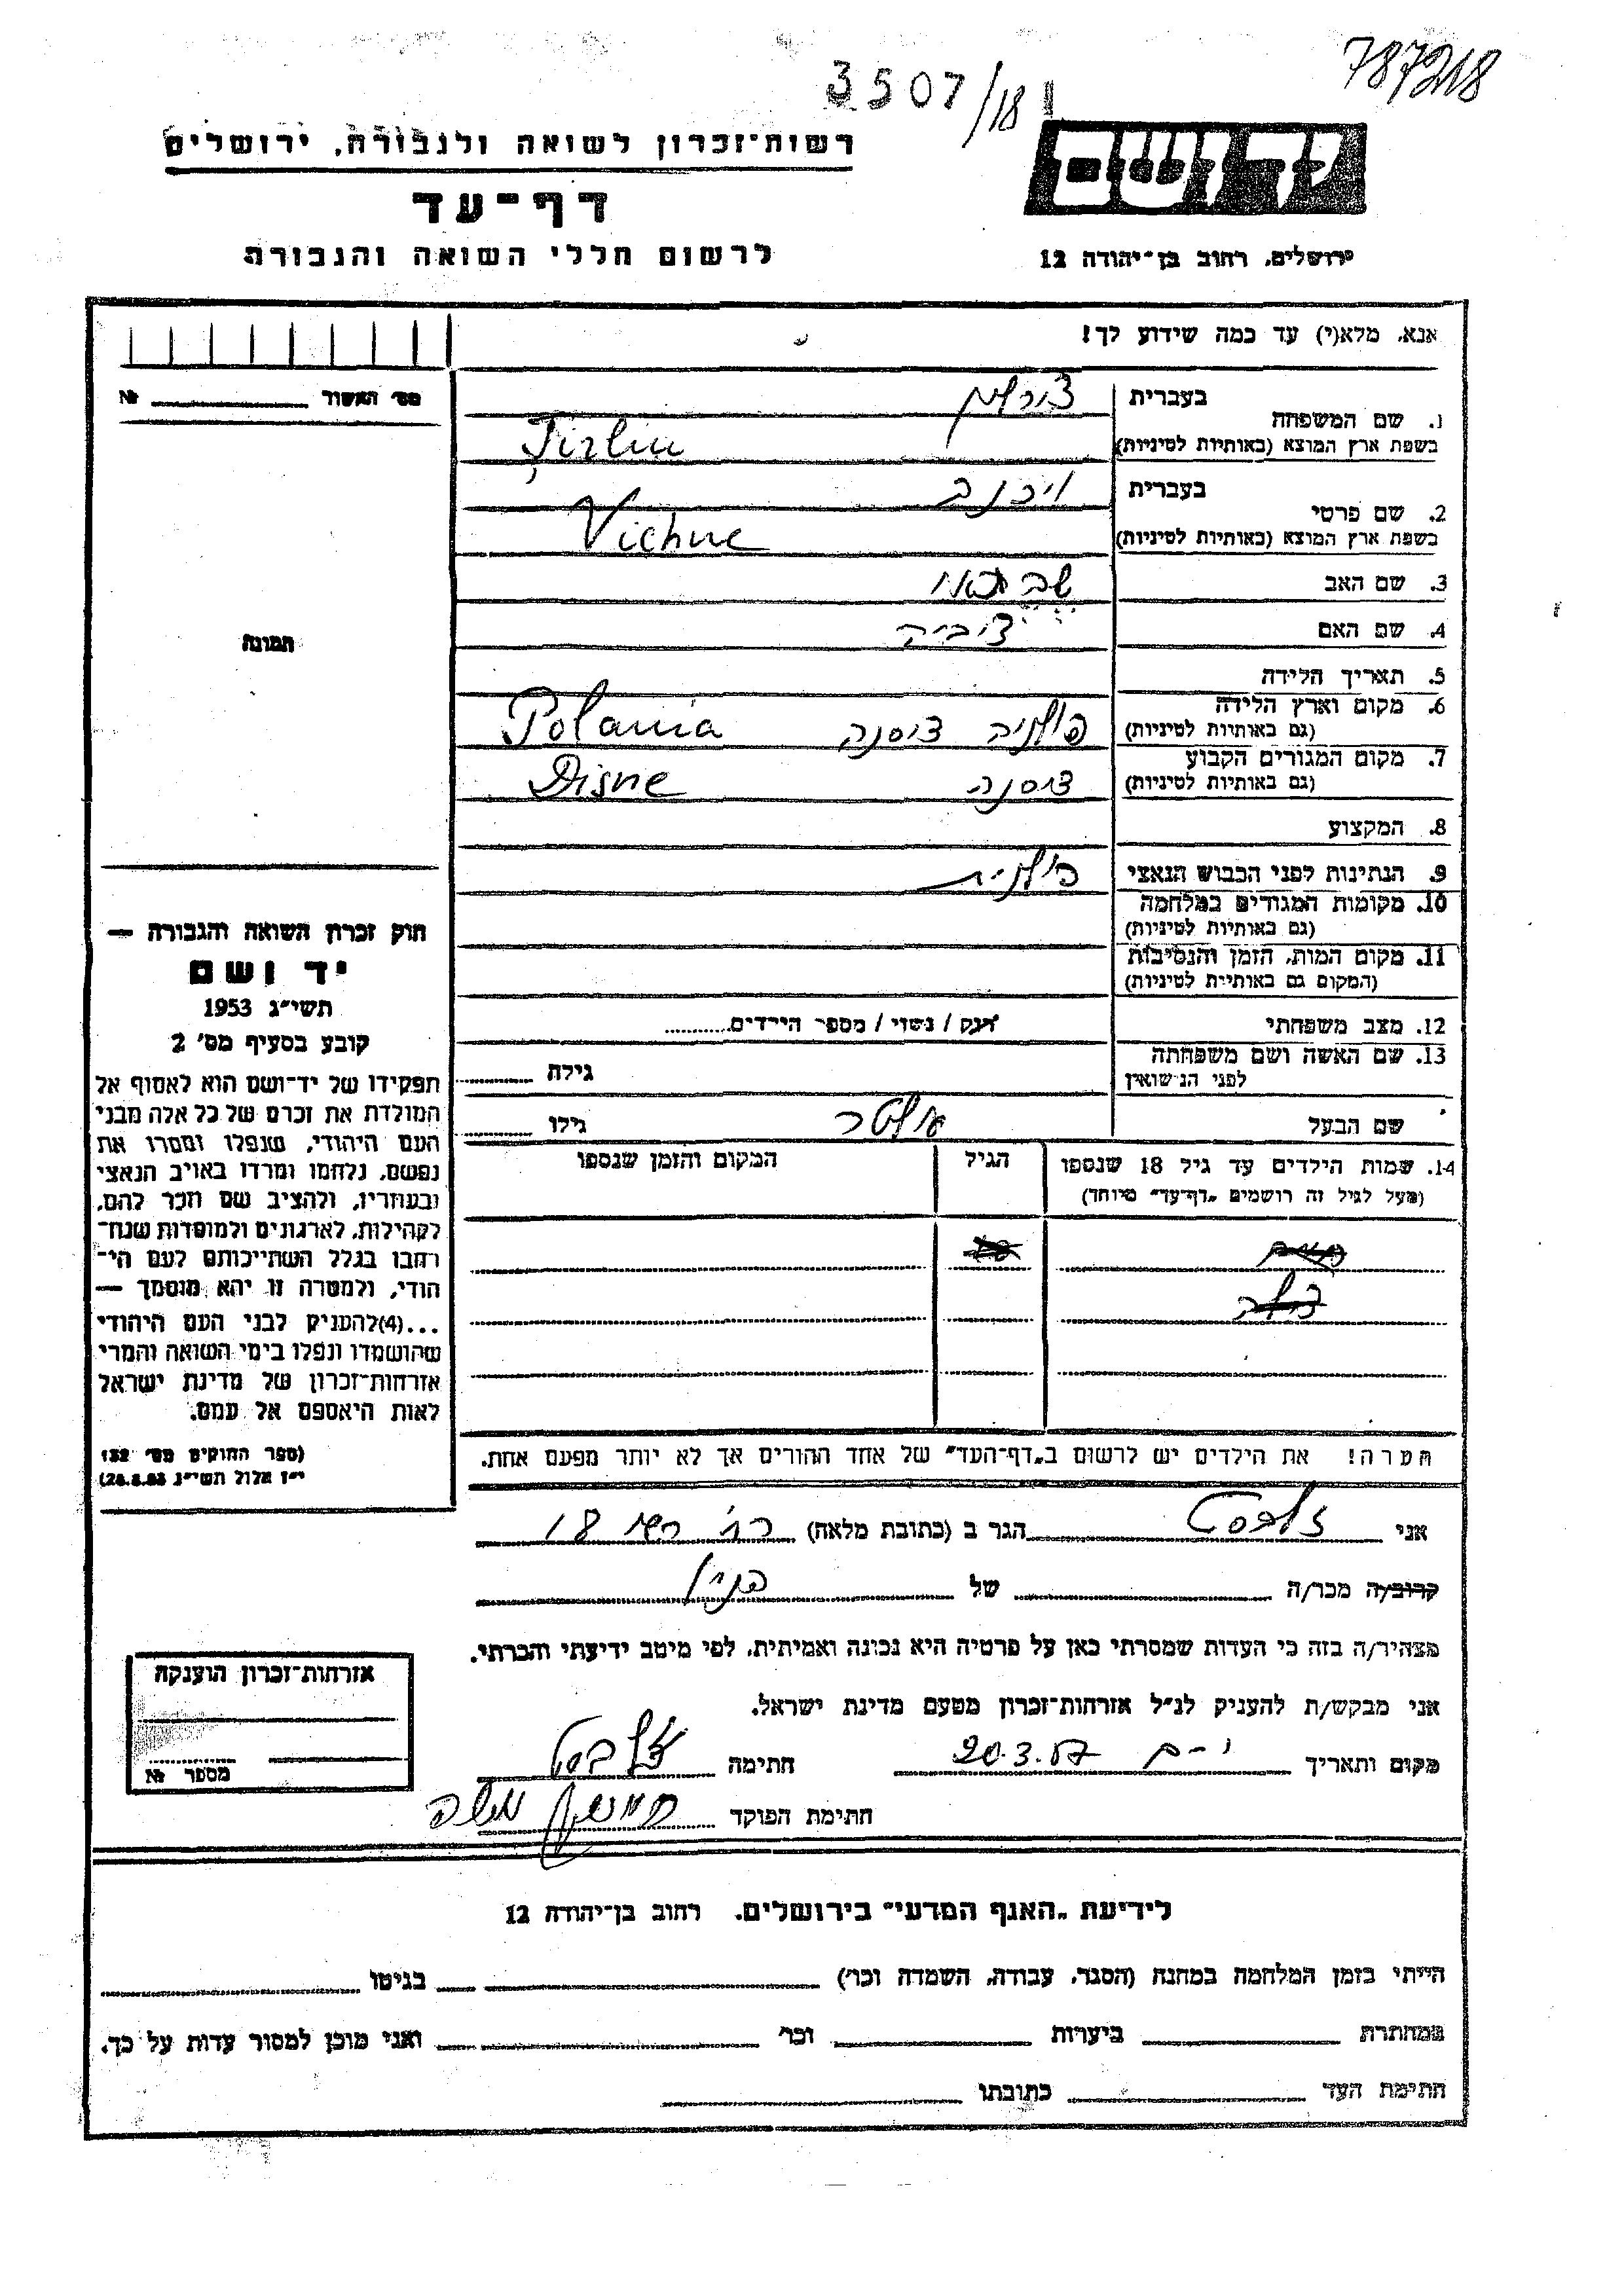 787218
3507/18
רשות־זכרון לשואה ולגבורה, ירושלים
דף־עד
לרשום חללי השואה והגבורה
ירושלים, רחוב בן־יהודה 12
אנא, מלא(י) עד כמה שידוע לך!
מס׳ האשור № 
1. שם המשפחה בעברית
בשפת ארץ המוצא (באותיות לטיניות)
2. שם פרטי בעברית ויכנה
בשפת ארץ המוצא (באותיות לטיניות) Vichne
3. שם האב שבתאי
4. שם האם ציביה
תמונה
5. תאריך הלידה
6. מקום וארץ הלידה פולניה דיסנה Polania
(גם באותיות לטיניות)
7. מקום המגורים הקבוע דיסנה Disne
(גם באותיות לטיניות)
8. המקצוע
9. הנתינות לפני הכבוש הנאצי פולנית
10. מקומות המגורים במלחמה
(גם באותיות לטיניות)
11. מקום המות, הזמן והנסיבות
(המקום גם באותיות לטיניות)
12. מצב משפחתי רווק / נשוי / מספר הילדים
13. שם האשה ושם משפחתה
לפני הנישואין גילה
שם הבעל אלטר גילו
14. שמות הילדים עד גיל 18 שנספו הגיל המקום והזמן שנספו
(מעל לגיל זה רושמים „דף־עד״ מיוחד)
חוק זכרון השואה והגבורה —
יד ושם
תשי״ג 1953
קובע בסעיף מס׳ 2
תפקידו של יד־ושם הוא לאסוף אל
המולדת את זכרם של כל אלה מבני
העם היהודי, שנפלו ומסרו את
נפשם, נלחמו ומרדו באויב הנאצי
ובעוזריו, ולהציב שם וזכר להם,
לקהילות, לארגונים ולמוסדות שנח־
רבו בגלל השתייכותם לעם הי־
הודי, ולמטרה זו יהא מוסמך —
...(4)להעניק לבני העם היהודי
שהושמדו ונפלו בימי השואה והמרי
אזרחות־זכרון של מדינת ישראל
לאות היאספם אל עמם.
(ספר החוקים מס׳ 132
י״ז אלול תשי״ג 28.8.53)
הערה! את הילדים יש לרשום ב„דף־העד״ של אחד ההורים אך לא יותר מפעם אחת.
אני הגר ב (כתובת מלאה) 18
קרוב/ה מכר/ה של
מצהיר/ה בזה כי העדות שמסרתי כאן על פרטיה היא נכונה ואמיתית, לפי מיטב ידיעתי והכרתי.
אני מבקש/ת להעניק לנ״ל אזרחות־זכרון מטעם מדינת ישראל.
מקום ותאריך י-ם 20.3.57 חתימה
חתימת הפוקד משה
אזרחות־זכרון הוענקה
מספר №
לידיעת „האגף המדעי״ בירושלים, רחוב בן־יהודה 12
הייתי בזמן המלחמה במחנה (הסגר, עבודה, השמדה וכו׳) בגיטו
במחתרת ביערות וכו׳ ואני מוכן למסור עדות על כך.
חתימת העד כתובתו